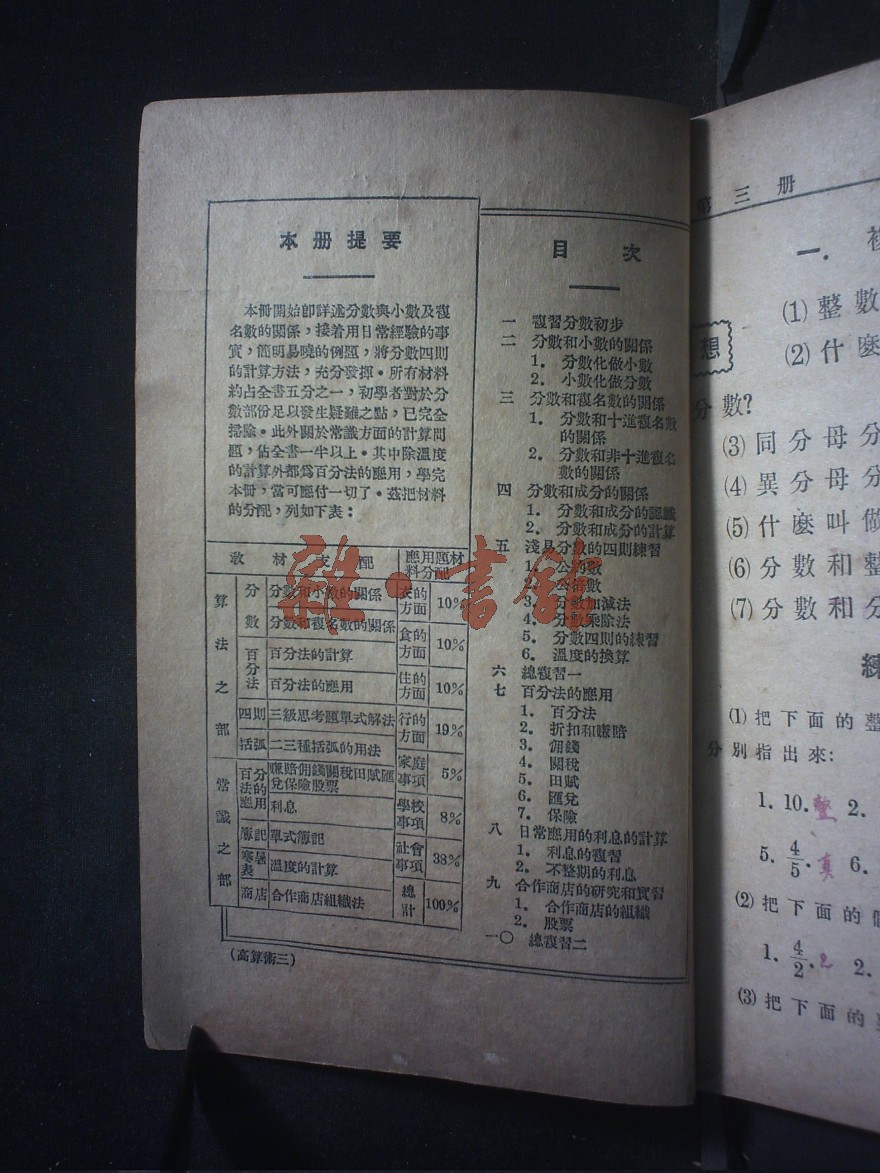 本册提要
本冊開始卽詳述分數與小數及複
名數的關係，接着用日常經驗的事
實，簡明易曉的例題，將分數四則
的計算方法，充分發揮．所有材料
約占全書五分之一，初學者對於分
數部份足以發生疑難之點，已完全
掃除．此外關於常識方面的計算問
題，佔全書一半以上．其中除溫度
的計算外都爲百分法的應用，學完
本冊，當可應付一切了．茲把材料
的分配，列如下表：
教材支配
應用題材
料分配
算法之部
分數
分數和小數的關係
分數和複名數的關係
百分法
百分法的計算
百分法的應用
四則
三級思考題單式解法
括弧
二三種括弧的用法
常識之部
百分法的應用
賺賠佣錢關稅田賦匯
兌保險股票
利息
簿記
單式簿記
寒暑表
溫度的計算
商店
合作商店組織法
衣的方面 10%
食的方面 10%
住的方面 10%
行的方面 19%
家庭事項 5%
學校事項 8%
社會事項 38%
總計 100%
(高算術三)
目次
一 複習分數初步
二 分數和小數的關係
1. 分數化做小數
2. 小數化做分數
三 分數和複名數的關係
1. 分數和十進複名數
的關係
2. 分數和非十進複名
數的關係
四 分數和成分的關係
1. 分數和成分的認識
2. 分數和成分的計算
五 淺易分數的四則練習
1. 公約數
2. 公倍數
3. 分數加減法
4. 分數乘除法
5. 分數四則的練習
6. 溫度的換算
六 總複習一
七 百分法的應用
1. 百分法
2. 折扣和賺賠
3. 佣錢
4. 關稅
5. 田賦
6. 匯兌
7. 保險
八 日常應用的利息的計算
1. 利息的複習
2. 不整期的利息
九 合作商店的研究和實習
1. 合作商店的組織
2. 股票
一〇 總複習二
雜·書館
第三册
一. 複
想
(1) 整數
(2) 什麼
分數?
(3) 同分母分
(4) 異分母分
(5) 什麼叫做
(6) 分數和整
(7) 分數和分
練
(1) 把下面的整
分別指出來：
1. 10. 整 2.
5. 4/5. 真 6.
(2) 把下面的假
1. 4/2. 2 2.
(3) 把下面的